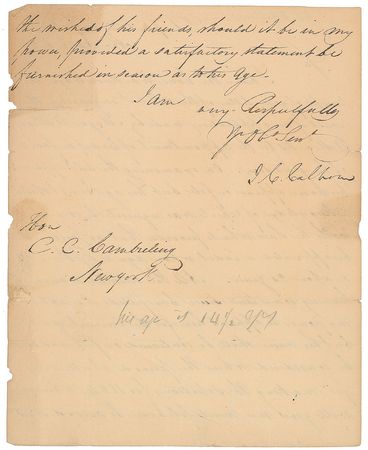 the wishes of his friends, should it be in my
power provided a satisfactory statement be
furnished in season as to his Age.
I am
very Respectfully
Yr Obt Servt
J. C. Calhoun
Hon
C. C. Cambreleng
New york
his age is 14 1/2 yrs